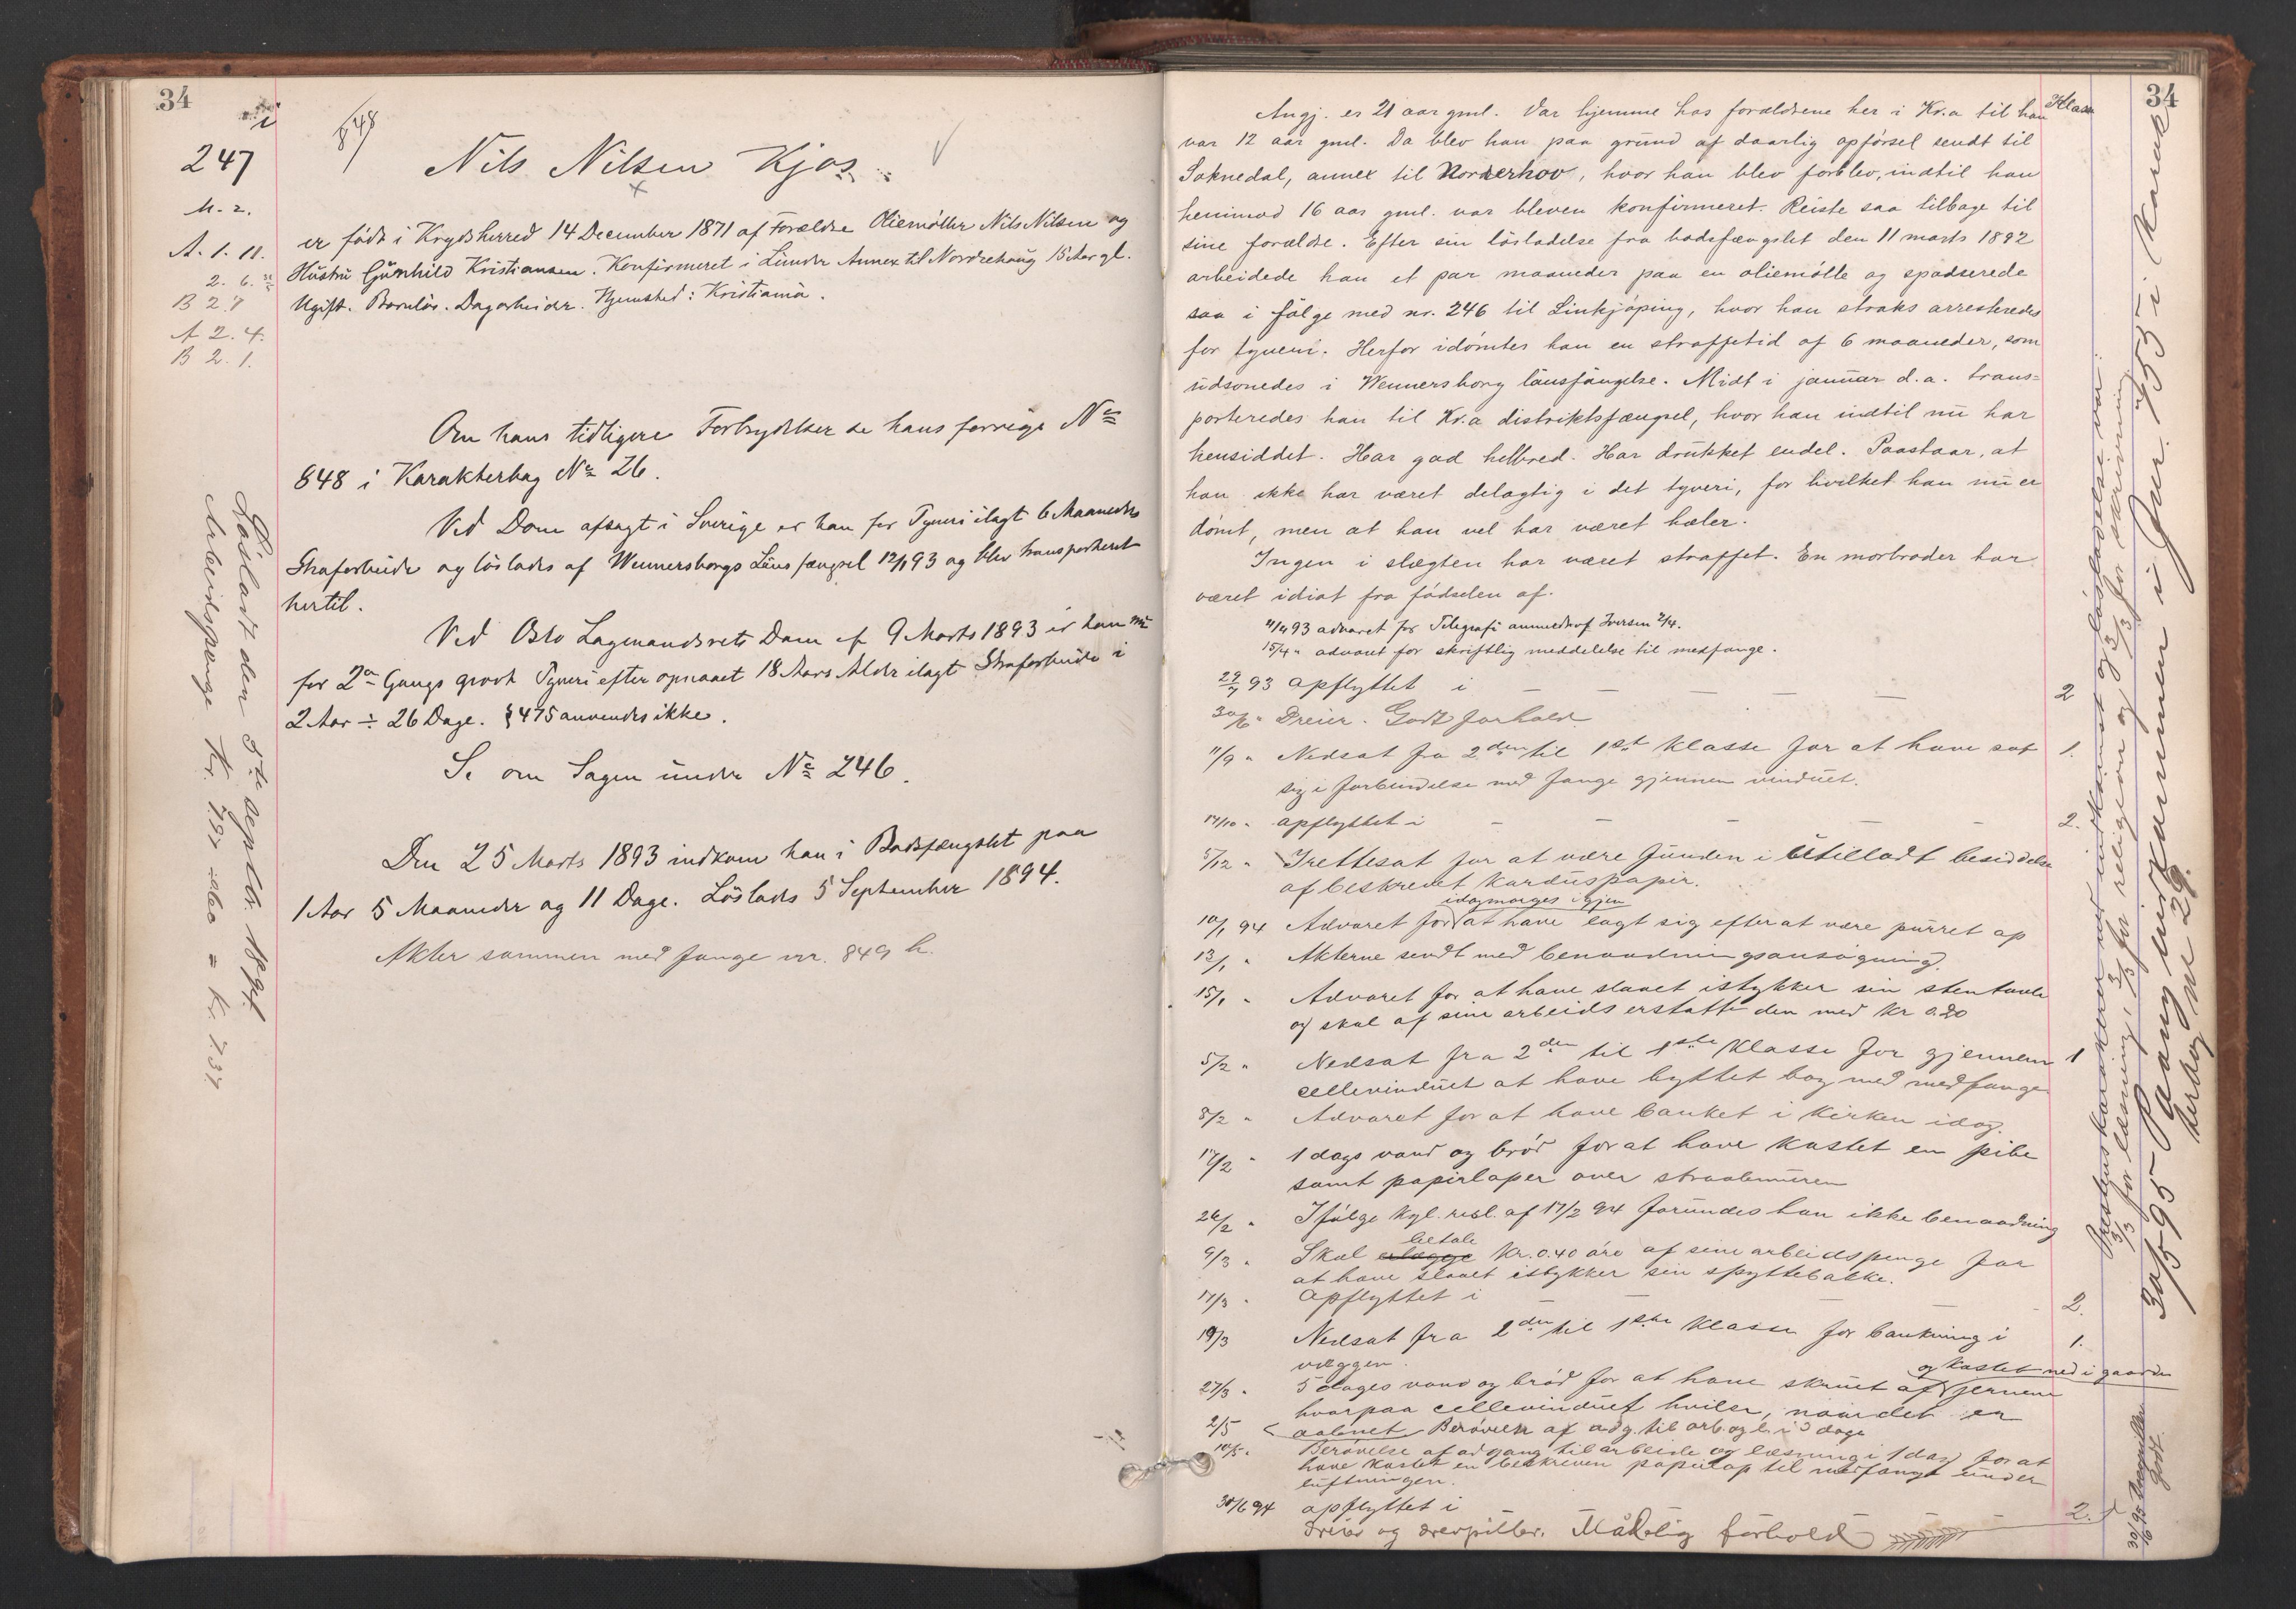 34
247
848
Nils Nilsen Kjos.
M. 2.
A. 1. 11.
2. 6.
B 2. 7
A 2. 4.
B 2. 1.
er född i Krydsherred 14 December 1871 af Forældre Oliemøller Nils Nilsen og
Hustru Gunhild Kristiansen. Konfirmeret i Lunder Annex til Nordrehaug 15 Aar gl.
Ugift. Barnløs. Dagarbeider. Hjemsted: Kristiania.
Om hans tidligere Forbrydelser se hans forrige No
848 i Karakterbog No 26.
Ved Dom afsagt i Sverige er han for Tyveri ilagt 6 Maaneders
Strafarbeide og löslades af Wennersborgs Läns fængsel 12/1 93 og blev transporteret
hertil.
Ved Oslo Lagmandsrets Dom af 9 Marts 1893 er han nu
for 2en Gangs grovt Tyveri efter opnaaet 18 Aars Alder ilagt Strafarbeide i
2 Aar ÷ 26 Dage. § 475 anvendes ikke.
Se om Sagen under No 246.
Den 25 Marts 1893 indkom han i Bodsfængslet paa
1 Aar 5 Maaneder og 11 Dage. Löslades 5 September 1894.
Akter sammen med fange nr. 849 h.
Lösladt den 5te septbr. 1894.
Arbeidspenge Kr. 7.97 ÷ 0.60 = Kr. 7.37
34
Klasse
Angj. er 21 aar gml. Var hjemme hos forældrene her i Kr.a til han
var 12 aar gml. Da blev han paa grund af daarlig opförsel sendt til
Soknedal, annex til Norderhov, hvor han blev forblev, indtil han
henimod 16 aar gml. var bleven konfirmeret. Reiste saa tilbage til
sine forældre. Efter sin lösladelse fra bodsfængslet den 11 marts 1892
arbeidede han et par maaneder paa en oliemölle og spadserede
saa i fölge med nr. 246 til Linkjöping, hvor han straks arresteredes
for tyveri. Herfor idömtes han en straffetid af 6 maaneder, som
udsonedes i Wennersborg länsfängelse. Midt i januar d.a. trans=
porteredes han til Kr.a distriktsfængsel, hvor han indtil nu har
hensiddet. Har god helbred. Har drukket endel. Paastaar, at
han ikke har været delagtig i det tyveri, for hvilket han nu er
dömt, men at han vel har været hæler.
Ingen i slægten har været straffet. En morbroder har
været idiot fra födselen af.
11/4 93 advaret for Telegrafi anmeldt af Iversen 7/4.
15/4 " advaret for skriftlig meddelelse til medfange.
93 opflyttet i — — — — — 2
30/6 " Dreier. Godt forhold
11/9 " Nedsat fra 2den til 1ste klasse for at have sat 1.
sig i forbindelse med fange gjennem vinduet.
14/10 " opflyttet i — — — — 2.
5/12 " Irettesat for at være funden i utilladt besiddelse
af beskrevet karduspapir.
idagmorges igjen
10/1 94 Advaret for at have lagt sig efter at være purret op
13/1 " Akterne sendt med benaadningsansögning.
15/1 " Advaret for at have slaaet istykker sin stentavle
og skal af sine arbeids erstatte den med Kr 0.20
5/2 " Nedsat fra 2den til 1ste klasse for gjennem 1
cellevinduet at have byttet bog med medfange
8/2 " Advaret for at have banket i kirken idag.
17/2 " 1 dags vand og bröd for at have kastet en pibe
samt papirlaper over straalemuren
26/2 " Ifölge Kgl. resl. af 17/2 94 forundes han ikke benaadning
betale
9/3 " Skal erlægge Kr. 0.40 öre af sine arbeidspenge for
at have slaaet istykker sin spyttebakke.
17/3 " opflyttet i — — — 2.
19/3 Nedsat fra 2den til 1ste klasse for bankning i 1.
væggen.
og kastet ned i gaarden
27/3 " 5 dages vand og bröd for at have skruet af jernene
hvorpaa cellevinduet hviler, naar det er
aabnet
2/5 Berövelse af adg. til arb. og l. i 3 dage
10/5 " Berövelse af adgang til arbeide og læsning i 1 dag for at
have kastet en beskreven papirlap til medfange under
luftningen.
30/6 94 opflyttet i — — 2.
dreier og drevpiller. Mådelig forhold
Prestens karakterer ved indkomst og lösladelse var:
3/3 for læsning, 3/3 for religion og 3/3 for skrivning
30/5 95 Paany indkommen i Gjur. 955 i karak
terbog No 29.